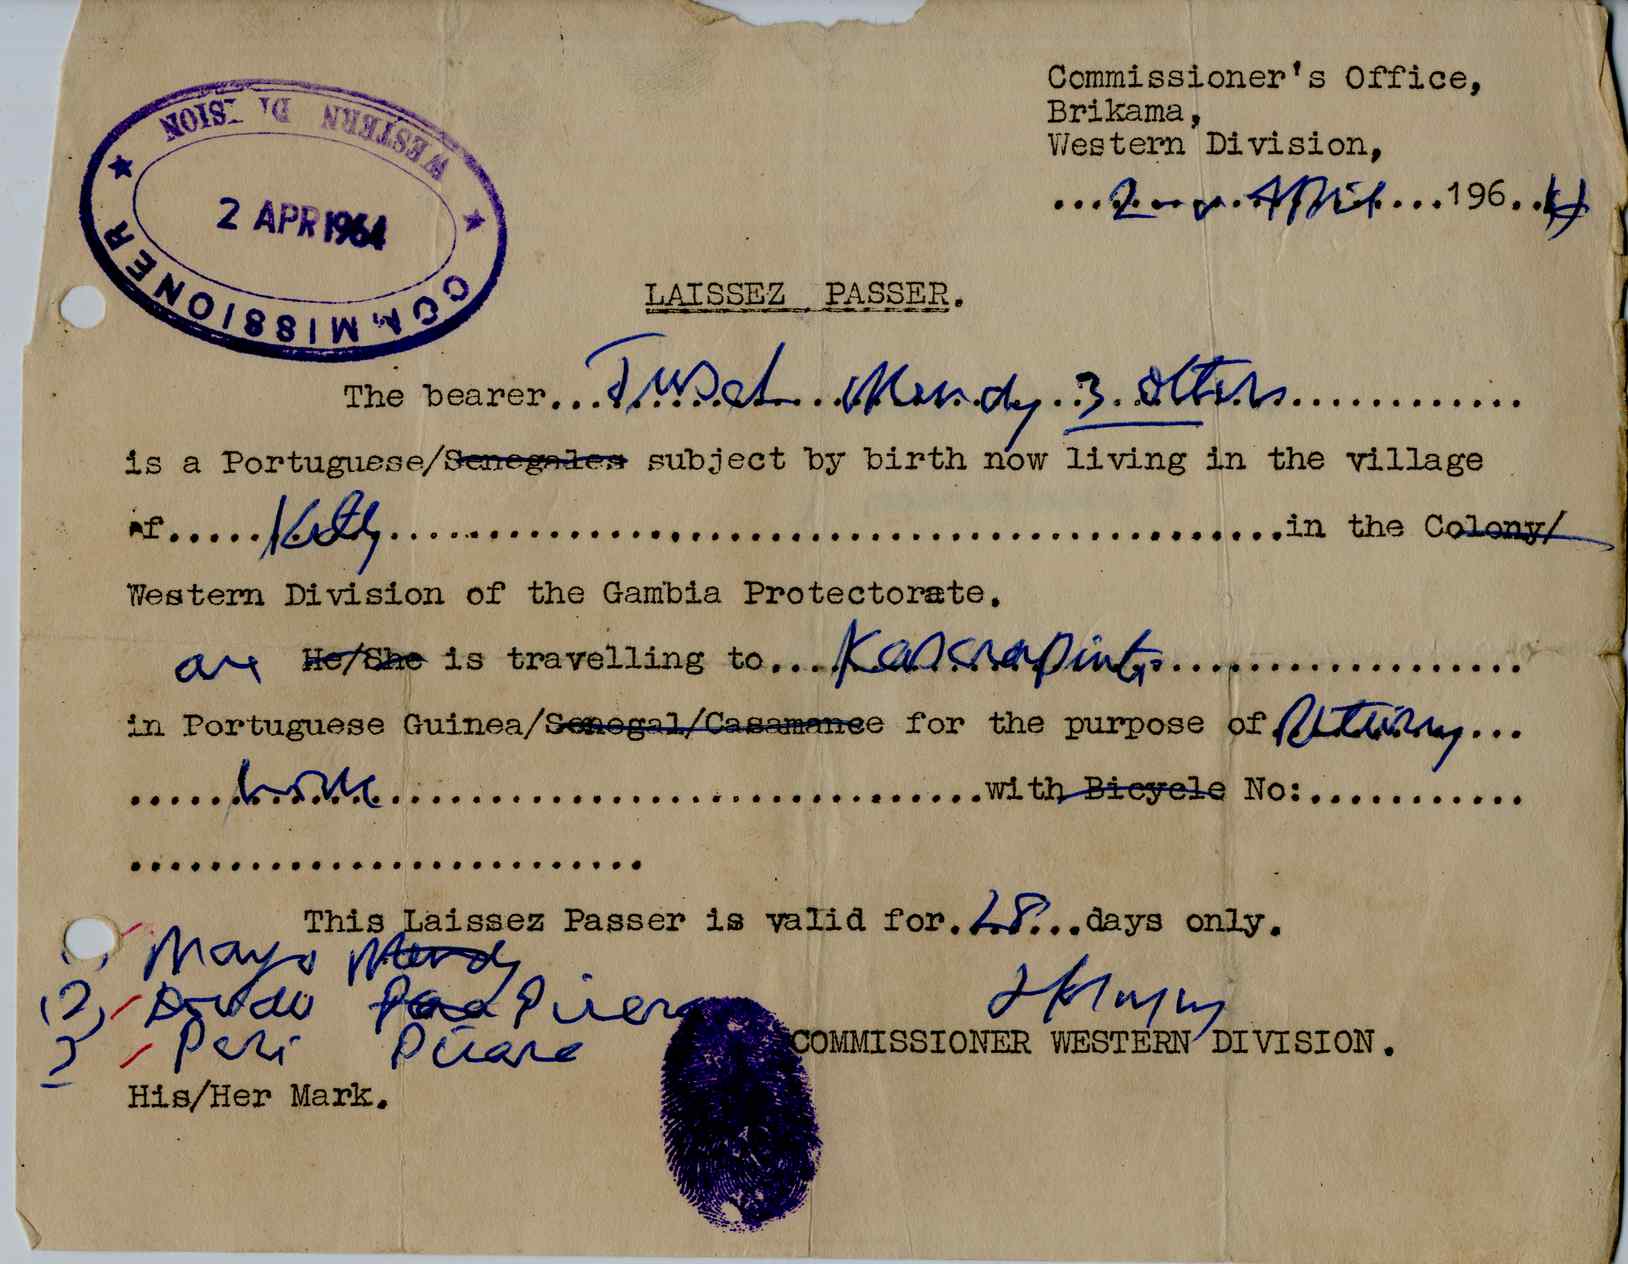 Commissioner's Office,
Brikama,
Western Division,
...2nd April...196..4
WESTERN DIVISION
2 APR 1964
COMMISSIONER
LAISSEZ PASSER.
The bearer... Mendy 3 others
is a Portuguese/Senegales subject by birth now living in the village
of..... in the Colony/
Western Division of the Gambia Protectorate.
are He/She is travelling to...
in Portuguese Guinea/Senegal/Casamance for the purpose of
with Bicycle No:
This Laissez Passer is valid for.28...days only.
Mayo Mendy
(2) Pirera
3 Peri
COMMISSIONER WESTERN DIVISION.
His/Her Mark.